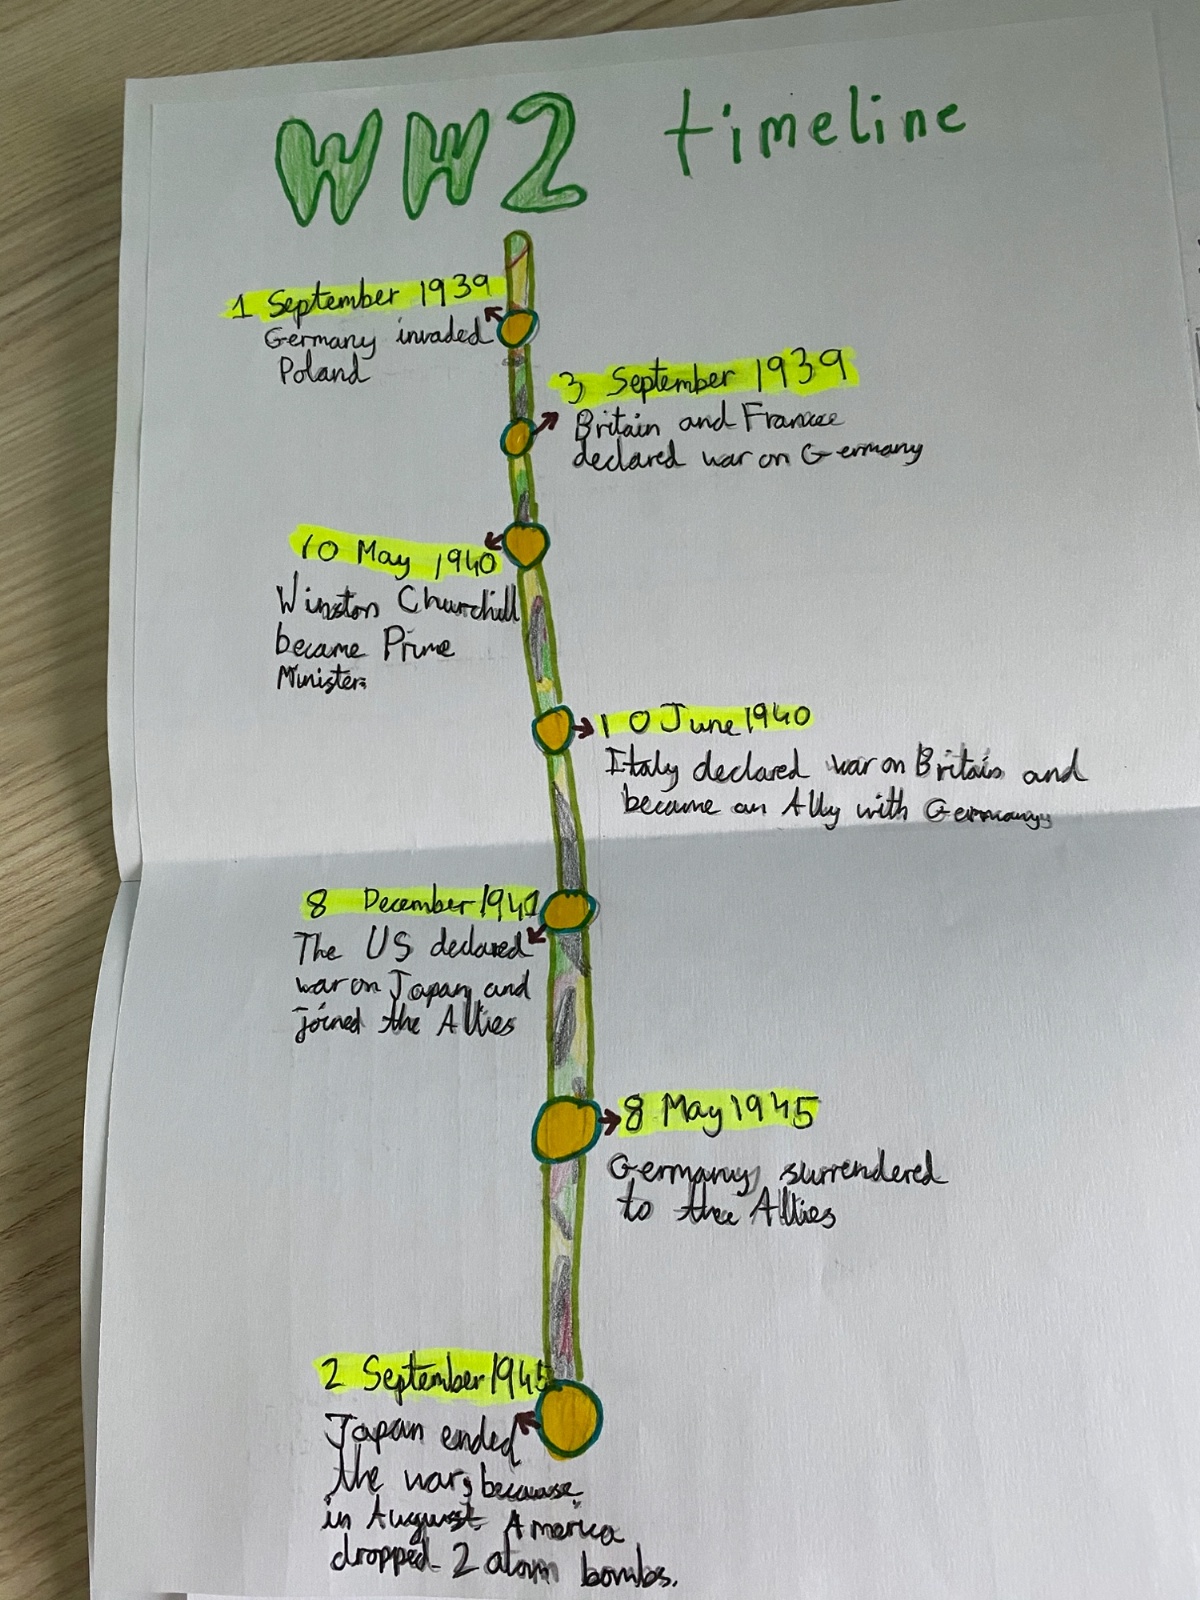 WW2 timeline
1 September 1939
Germany invaded
Poland
3 September 1939
Britain and France
declared war on Germany
10 May 1940
Winston Churchill
became Prime
Minister
10 June 1940
Italy declared war on Britain and
became an Ally with Germany
8 December 1941
The US declared
war on Japan and
joined the Allies
8 May 1945
Germany surrendered
to the Allies
2 September 1945
Japan ended
the war, because
in August America
dropped 2 atom bombs.